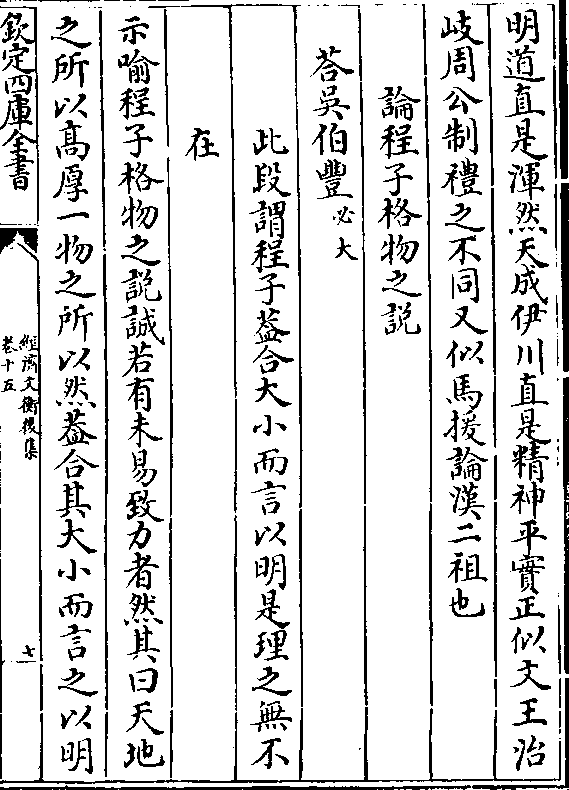 明道直是渾然天成伊川直是精神平實正似文王治
岐周公制禮之不同又似馬援論漢二祖也
論程子格物之説
荅吳伯豐必大
此段謂程子葢合大小而言以明是理之無不
在
示喻程子格物之説誠若有未易致力者然其曰天地
之所以髙厚一物之所以然葢合其大小而言之以明
欽定四庫全書
經濟文衡後集
卷十五
七